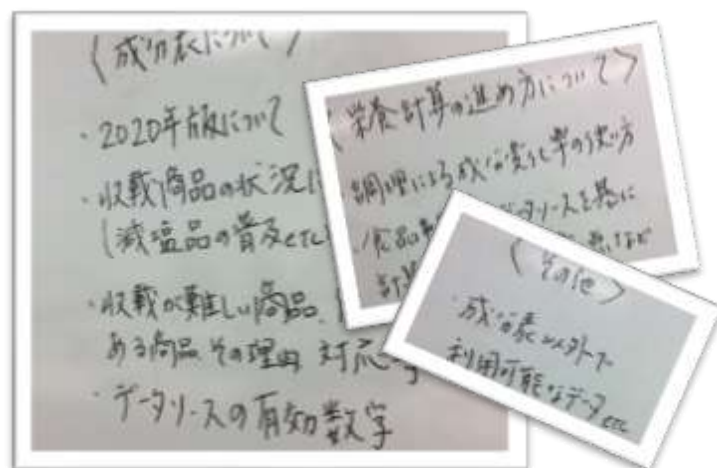 〈成分表について〉
・2020年版について
・収載商品の状況
(減塩品の普及etc
・収載が難しい商品、
ある商品 その理由 対応
・データソースの有効数字
〈栄養計算の進め方について〉
調理による成分変化率の使い方
食品 データソースを基に
計算
〈その他〉
・成分表以外で
利用可能なデータetc